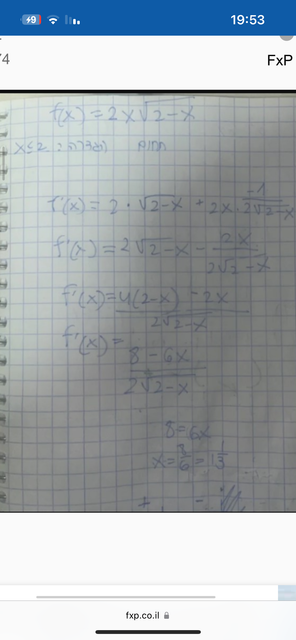 19:53
FxP
f(x) = 2x√2-x
x≤2 : תחום הגדרה
f'(x) = 2 · √2-x + 2x · -1/2√2-x
f'(x) = 2√2-x - 2x/2√2-x
f'(x) = 4(2-x) - 2x/2√2-x
f'(x) = 8 - 6x/2√2-x
8 = 6x
x = 8/6 = 1 1/3
fxp.co.il